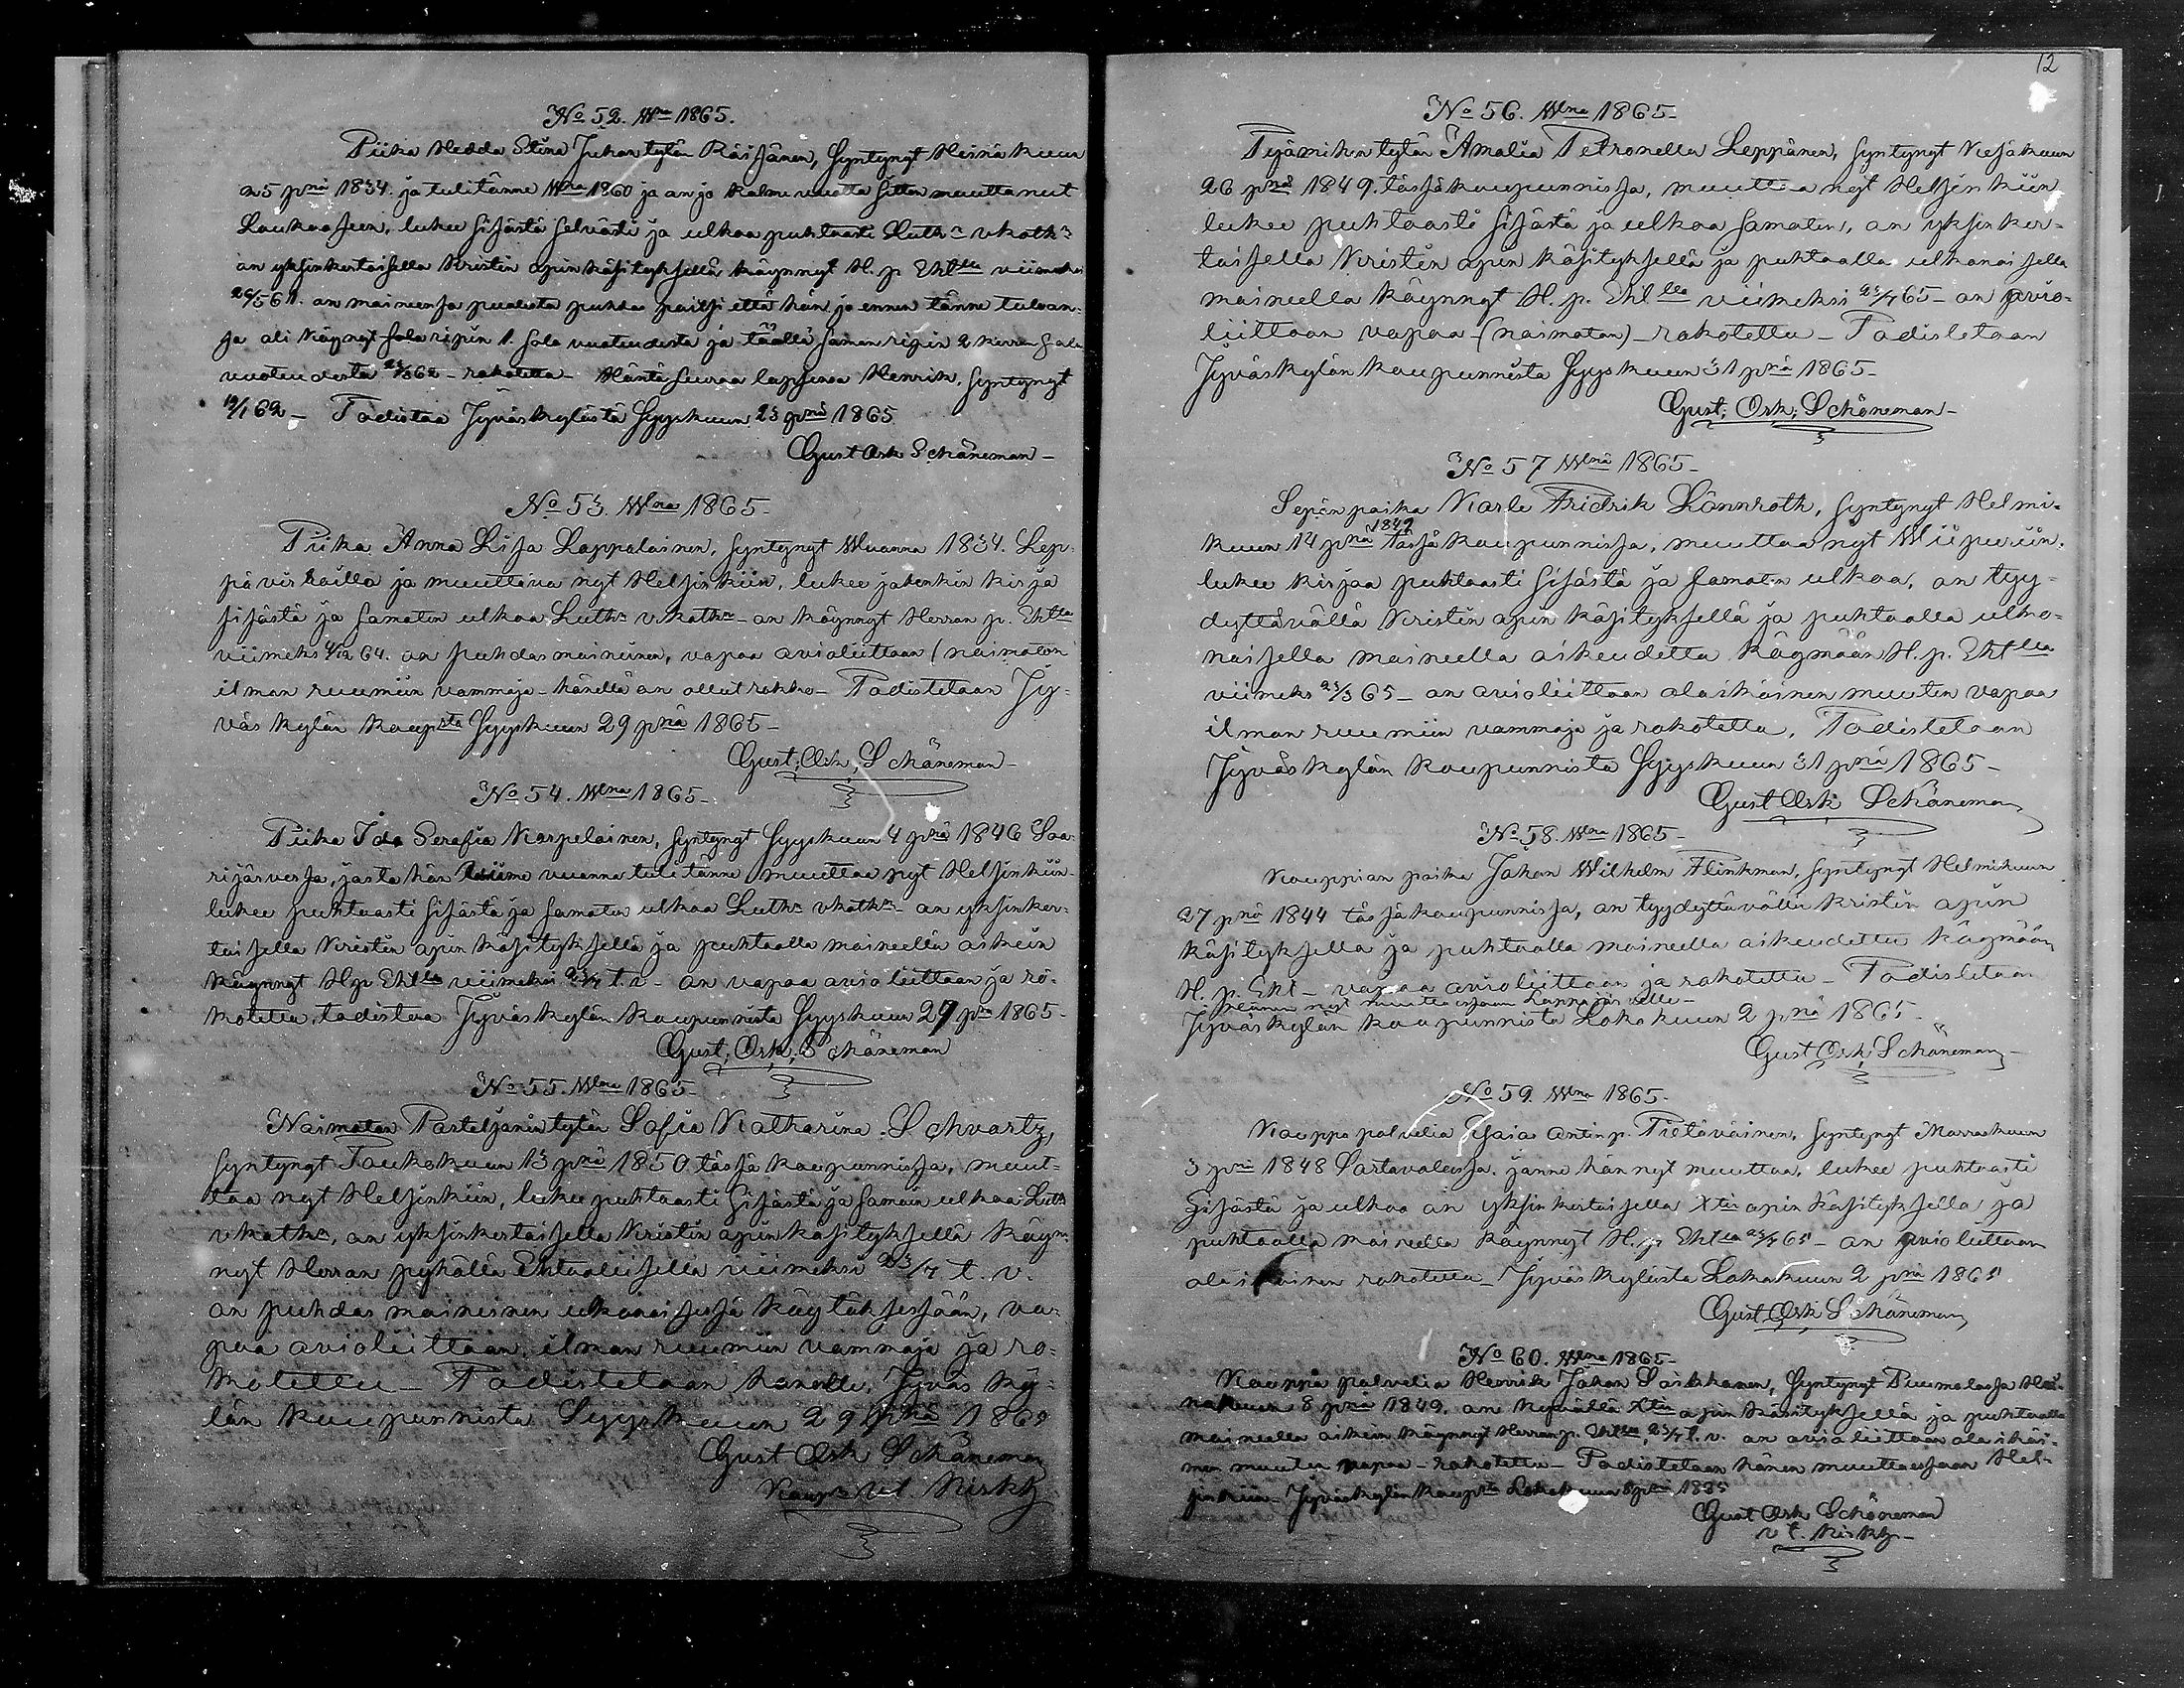 No 52. Wna 1865.
Piika Hedda Stina Juhontytär Räisänen, Syntynyt Heinäkuun
25 pnä 1834. ja tuli tänne Wna 1860 ja on jo kolme vuotta sitten muuttanut
Laukaaseen, lukee sisästä selvästi ja ulkoa puhtaasti Luthn vkatkn
on yksinkertaisella Kristin opin käsityksellä käynnyt H. p. Ehtlla viimeksi
ja oli käynyt ja täällä saman ripin 2 kerran sala
vuoteudesta rokotettu Häntä seuraa lapsensa Henrik, Syntynyt
19/1 62 – Todistaa Jyväskylästä Syyskuun 23 pnä 1865
Gust Osk Schöneman –
No 53. Wna 1865.
Piika Anna Lisa Lappalainen, Syntynyt Wuonna 1834. Lep-
pävirtailla ja muuttava nyt Helsinkiin, lukee jatenkin kirja
sisästä ja samaten ulkoa Luthn vkatkn – on käynnyt Herran p. Ehtlla
viimeks 4/12 64. on puhdas maineinen, vapaa avioliittoon (naimaton
ilman ruumiin vammoja – hänellä on ollut rokko – Todistetaan Jy-
väskylän kaupsta Syyskuun 29 pnä 1865 –
Gust; Osk; Schöneman –
No 54. Wna 1865 –
Piika Ida Serafia Karpelainen, Syntynyt Syyskuun 4 pnä 1846 Saa-
rijärvesä, josta hän viime vuonna tuli tänne muuttaa nyt Helsinkiin –
lukee puhtaasti sisästä ja samaten ulkoa Luthn vkatkn – on yksinker-
taisella Kristin opin käsityksellä ja puhtaalla maineella oikein
käynnyt H p Ehtlla viimeksi 23/4 t. v – on vapaa avioliittoon ja ro-
kotettu, todistaa Jyväskylän kaupunnista Syyskuun 29 pnä 1865 –
Gust; Osk; Schöneman
No 55. Wna 1865 –
Naimaton Porteljanintytär Sofia Katharina Schvartz,
Syntynyt Toukokuun 13 pnä 1850 tässä kaupunnissa, muut-
taa nyt Helsinkiin, lukee puhtaasti sisästä ja samoin ulkoa Luth
vkatkn, on yksinkertaisella Kristin opin käsityksellä käyn-
nyt Herran pyhällä Ehtoolisella viimeksi 23/4 t. v.
on puhdas maineinen ulkonaisessa käytöksessään, va-
paa avioliittoon, ilman ruumiin vammoja ja ro-
kotettu – Todistetaan hänelle, Jyväsky-
län kaupunnista Syyskuun 29 pnä 1865
Gust Osk Schöneman
Kaupn vt. Kirkh
12
No 56. Wna 1865 –
Työmihentytär Amalia Petronella Leppänen, Syntynyt Kesäkuun
26 pnä 1849. tässä kaupunnissa, muuttaa nyt Helsinkiin
lukee puhtaasti sisästä ja ulkoa samaten, on yksinker-
taisella Kristin opin käsityksellä ja puhtaalla ulkonaisella
maineella käynnyt H. p. Ehtlla viimeksi 23/4 65 – on avio-
liittoon vapaa – (naimaton) – rokotettu – Todistetaan
Jyväskylän kaupunnista Syyskuun 31 pnä 1865 –
Gust; Osk; Schöneman –
No 57 Wna 1865 –
Sepänpoika Karle Fridrik Lönnroth, Syntynyt Helmi-
1849
kuun 14 pnä tässä kaupunnissa, muuttaa nyt Wiipuriin,
lukee kirjaa puhtaasti sisästä ja samaten ulkoa, on tyy-
dyttävällä Kristin opin käsityksellä ja puhtaalla ulko-
naisella maineella oikeudettu käymään H. p. Ehtlla
viimeks 25/3 65 – on avioliittoon alaikäinen muuten vapaa
ilman ruumiin vammoja ja rokotettu, Todistetaan
Jyväskylän kaupunnista Syyskuun 31 pnä 1865 –
Gust Osk Schöneman
No 58. Wna 1865 –
Kauppian poika Johan Wilhelm Flinkman, Syntynyt Helmikuun
27 pnä 1844 tässä kaupunnissa, on tyydyttävällä kristin opin
käsityksellä ja puhtaalla maineella oikeudettu käymään
H. p. Ehl – vapaa avioliittoon ja rokotettu – Todistetaan
hänen nyt muuttaissaan
Jyväskylän kaupunnista Lokakuun 2 pnä 1865
Gust Osk Schöneman –
No 59. Wna 1865 –
Kauppapalvelia Esaias Antinp. Pietäväinen, Syntynyt Marraskuun
3 pnä 1848 Sortavalassa, janne hän nyt muuttaa, lukee puhtaasti
Sisästä ja ulkoa on yksinkertaisella Xtin opin käsityksellä ja
puhtaalla maineella käynnyt H. p. Ehtlla 23/4 65 – on avioliittoon
alaikäinen rokotettu – Jyväskylästä Lokakuun 2 pnä 1865
Gust Osk Schöneman
No 60. Wna 1865 –
Kauppa palvelia Henrik Johan Saikkanen, Syntynyt Puumalassa Hei-
näkuun 8 pnä 1849. on Xtin opin käsityksellä ja puhtaalla
maineella oikein käynnyt Herran p. Ehtlla 23/4 t. v. on avioliittoon alaikäi-
nen muuten vapaa – rokotettu – Todistetaan hänen muuttaessaan Hel-
sinkiin – Jyväskylän kaupsta Lokakuun 8 pnä 1865
Gust Osk Schöneman
v t. Kirkh –